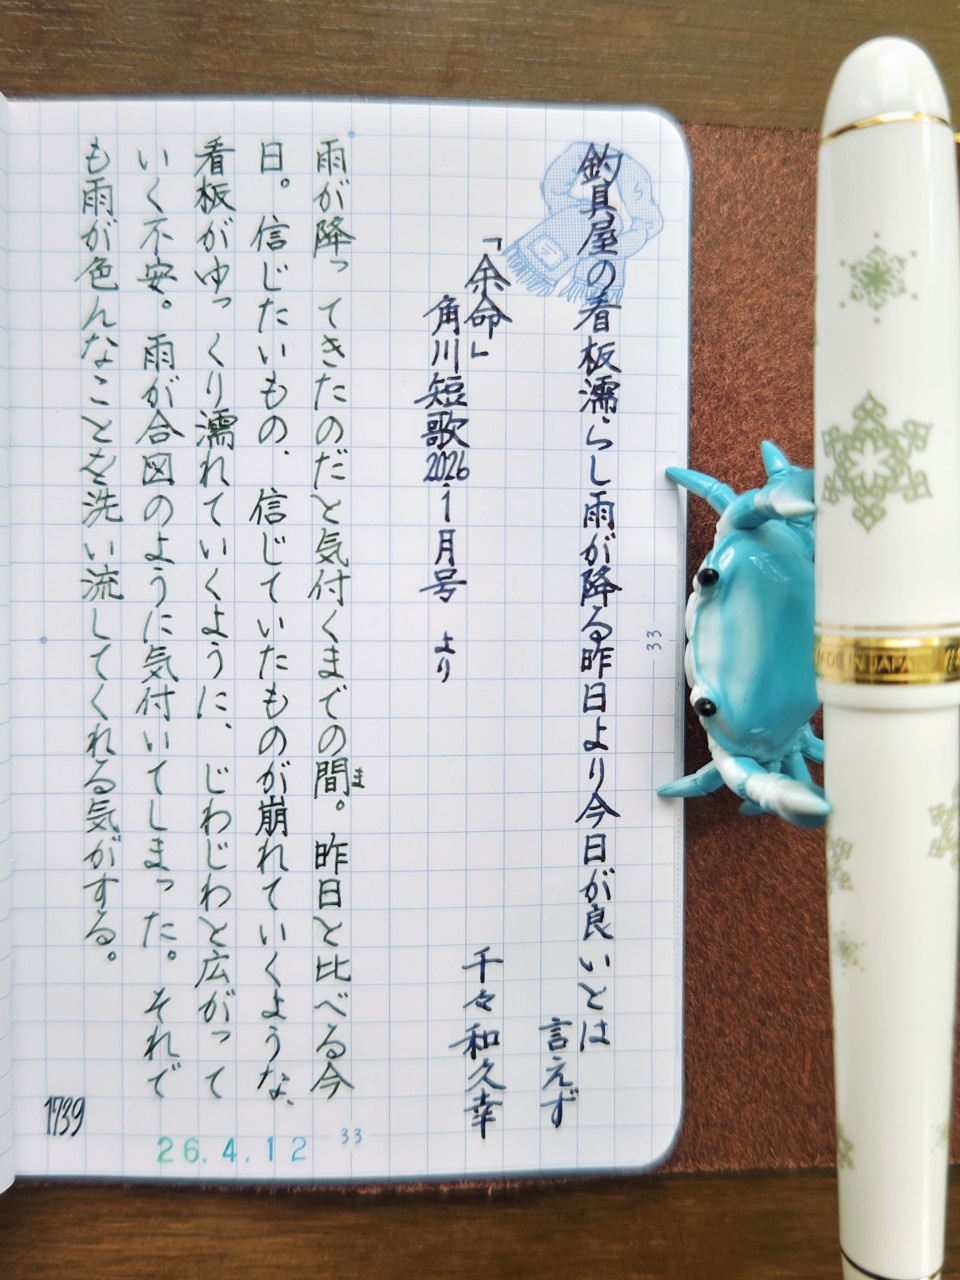 釣具屋の看板濡らし雨が降る昨日より今日が良いとは
言えず
「余命」
千々和久幸
角川短歌2026.1月号 より
雨が降ってきたのだと気付くまでの間。昨日と比べる今
ま
日。信じたいもの、信じていたものが崩れていくような、
看板がゆっくり濡れていくように、じわじわと広がって
いく不安。雨が合図のように気付いてしまった。それで
も雨が色んなことを洗い流してくれる気がする。
1739
26.4.12
33
33
MADE IN JAPAN